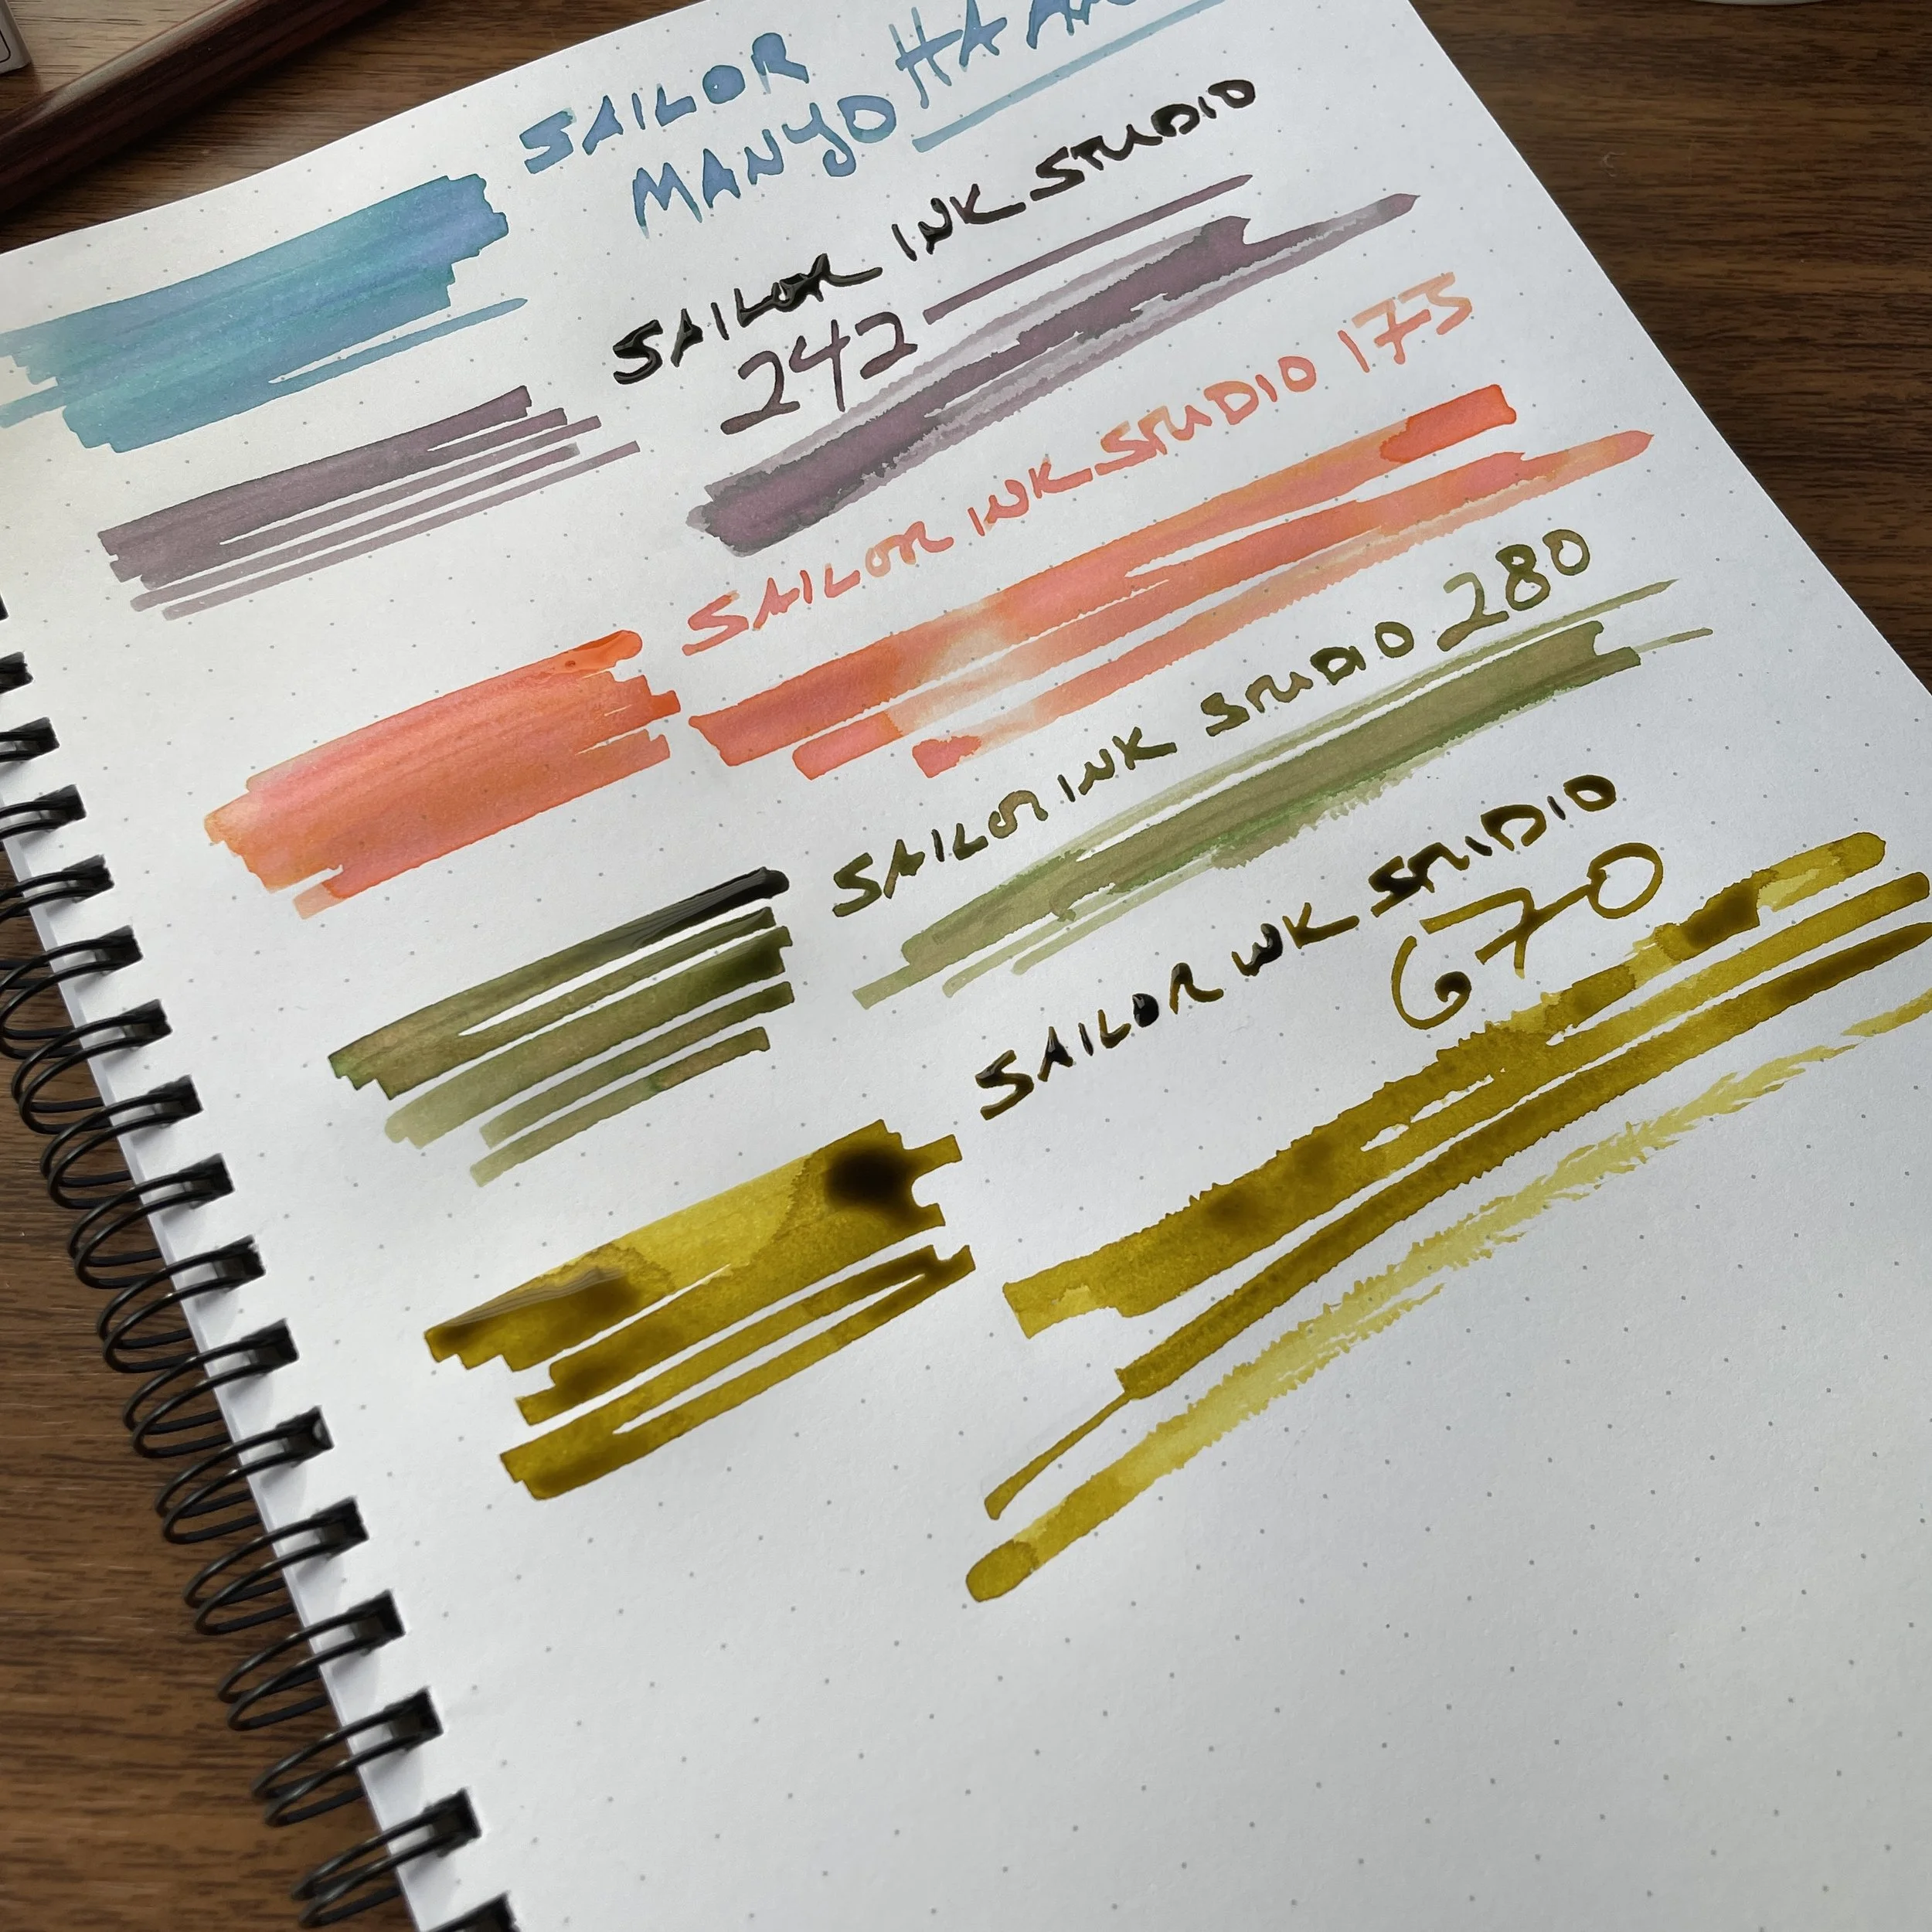 SAILOR
MANYO
SAILOR INK STUDIO
242
SAILOR INK STUDIO 173
SAILOR INK STUDIO 280
SAILOR INK STUDIO
670